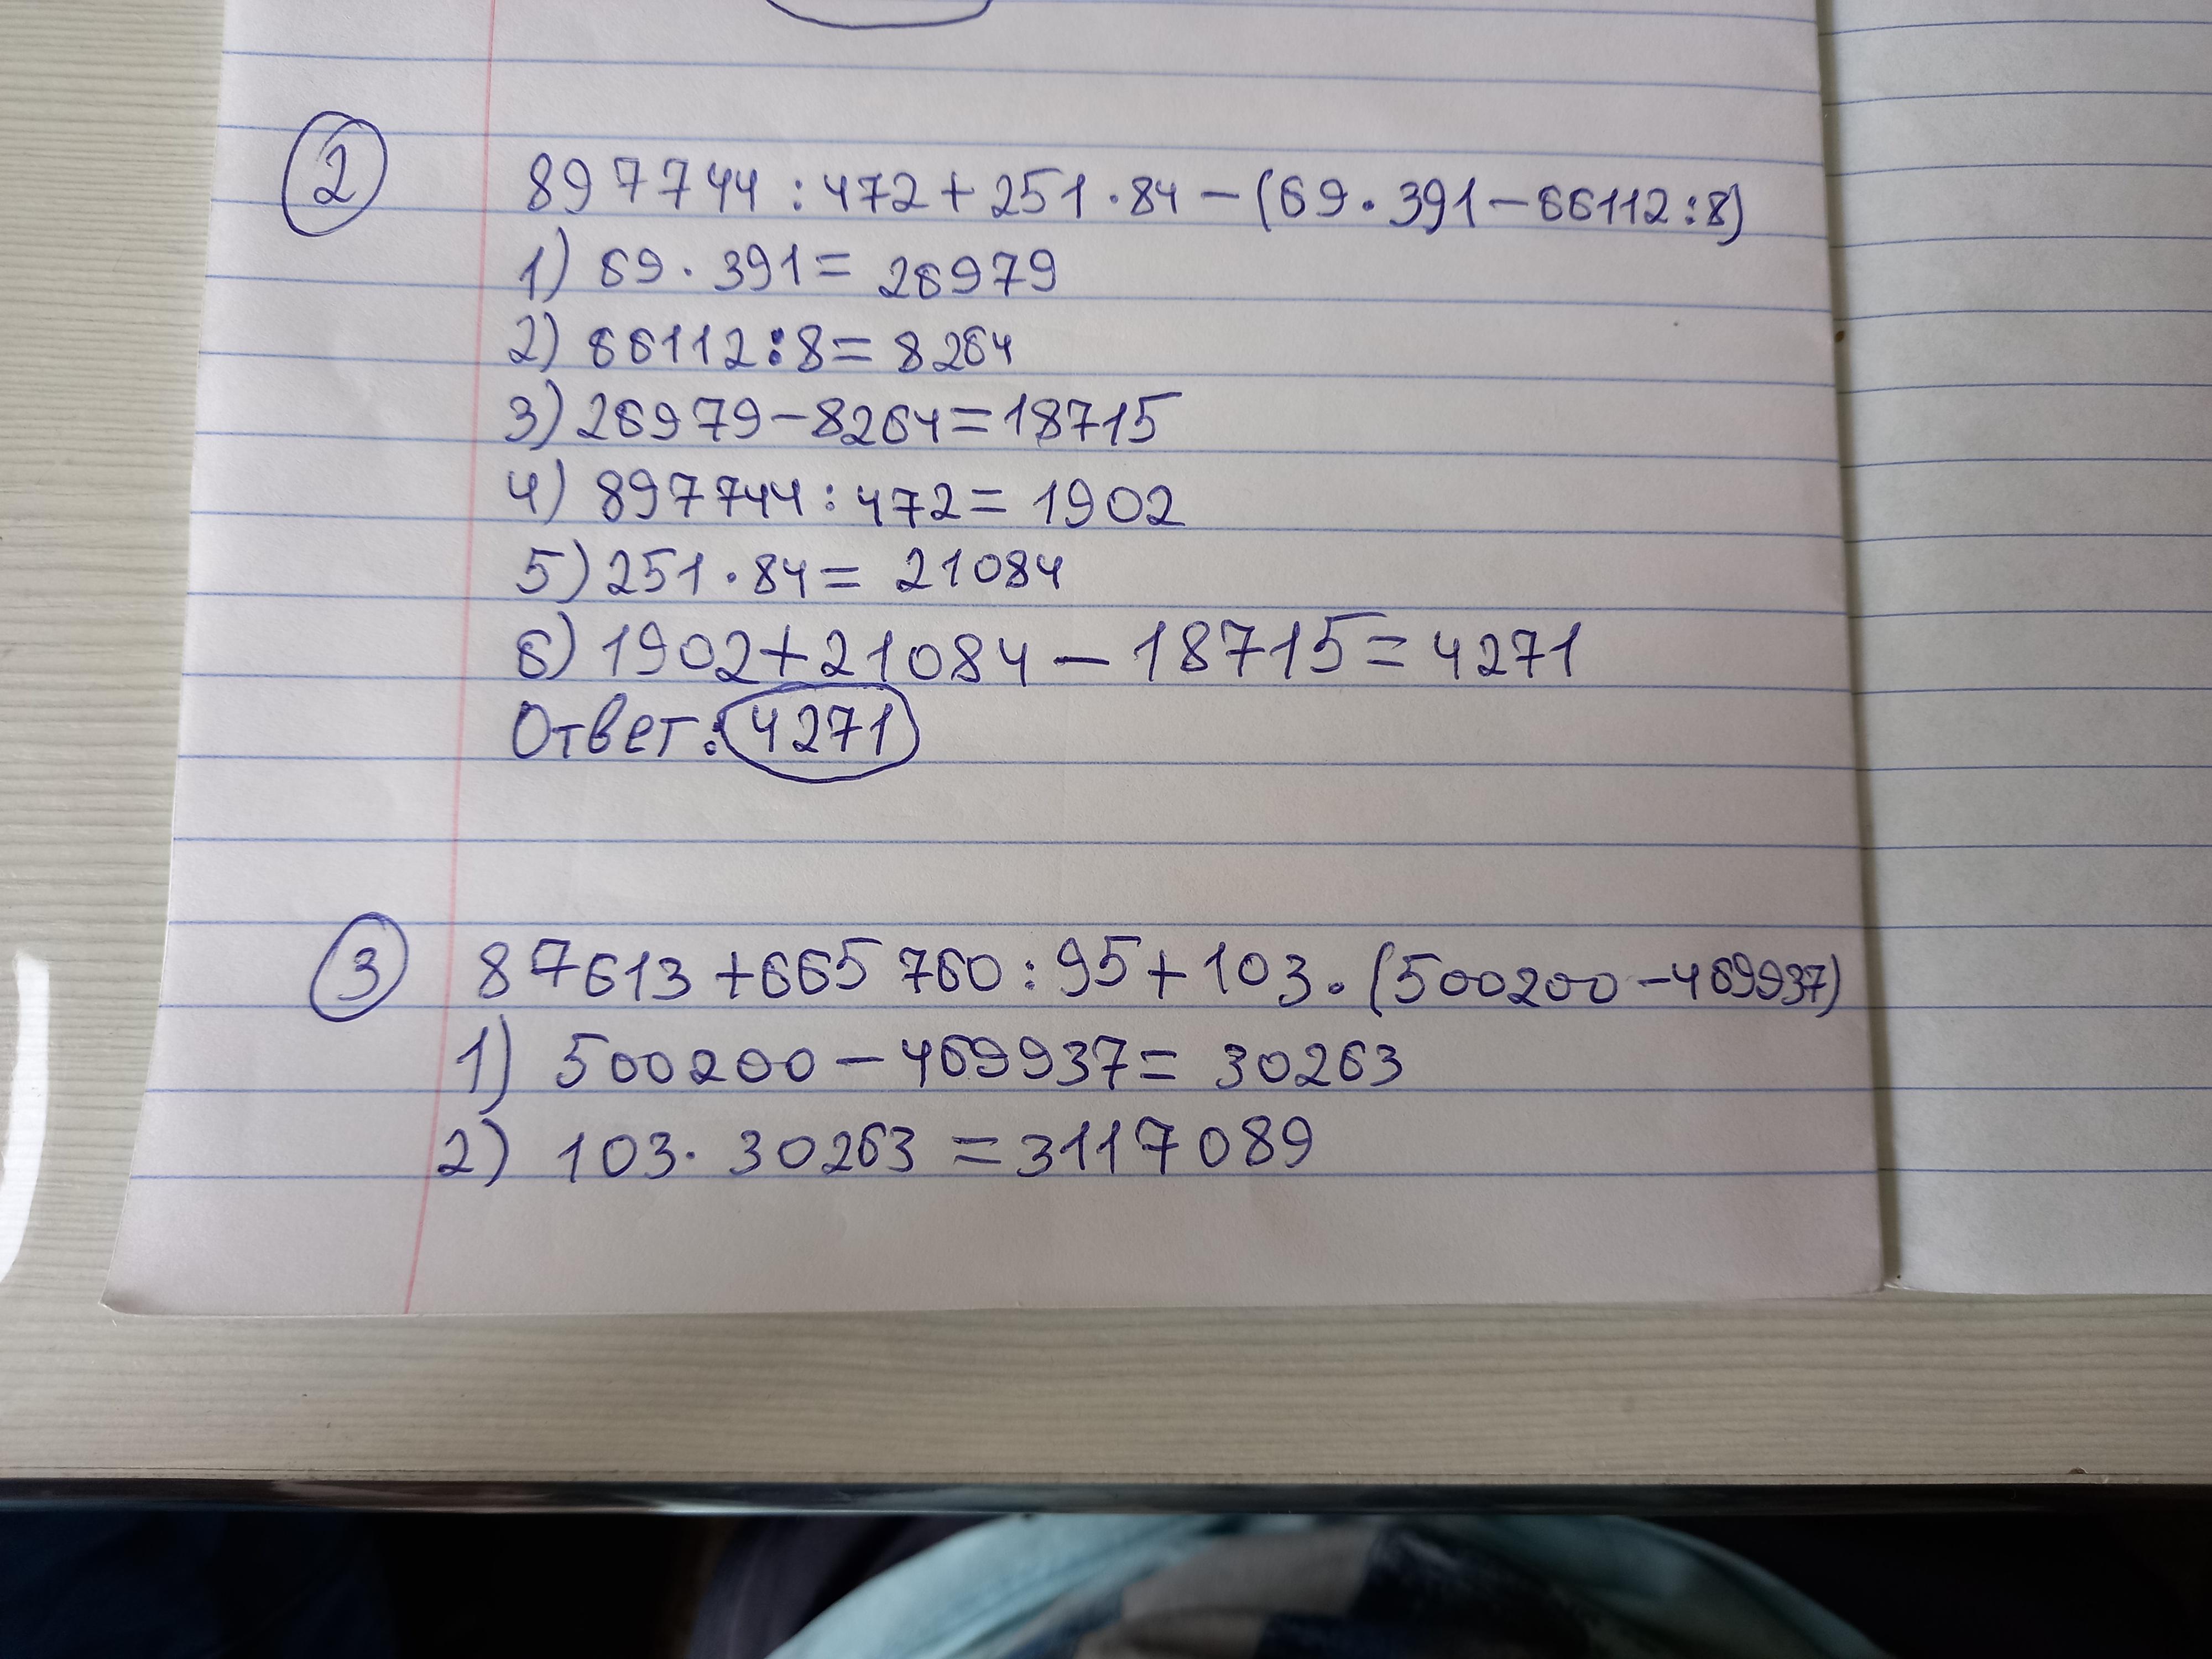 2 897744 : 472 + 251 · 84 – (69 · 391 – 66112 : 8)
1) 69 · 391 = 26979
2) 66112 : 8 = 8264
3) 26979 – 8264 = 18715
4) 897744 : 472 = 1902
5) 251 · 84 = 21084
6) 1902 + 21084 – 18715 = 4271
Ответ: 4271
3 87613 + 665760 : 95 + 103 · (500200 – 469937)
1) 500200 – 469937 = 30263
2) 103 · 30263 = 3117089